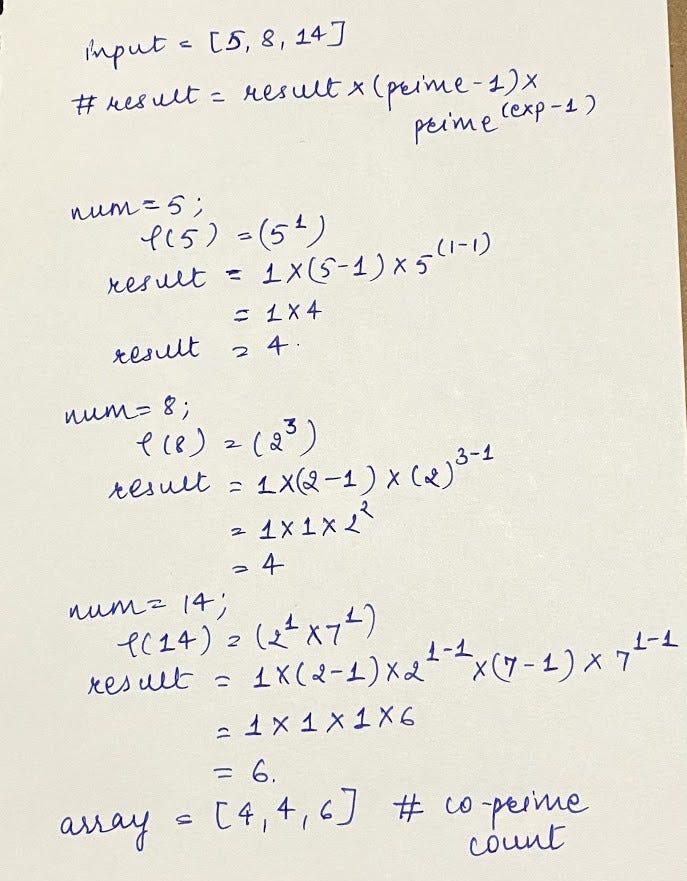 input = [5, 8, 14]
# result = result × (prime-1) ×
prime^(exp-1)
num = 5;
φ(5) = (5^1)
result = 1 × (5-1) × 5^(1-1)
= 1 × 4
result = 4.
num = 8;
φ(8) = (2^3)
result = 1 × (2-1) × (2)^3-1
= 1 × 1 × 2^2
= 4
num = 14;
φ(14) = (2^1 × 7^1)
result = 1 × (2-1) × 2^1-1 × (7-1) × 7^1-1
= 1 × 1 × 1 × 6
= 6.
array = [4, 4, 6] # co-prime
count